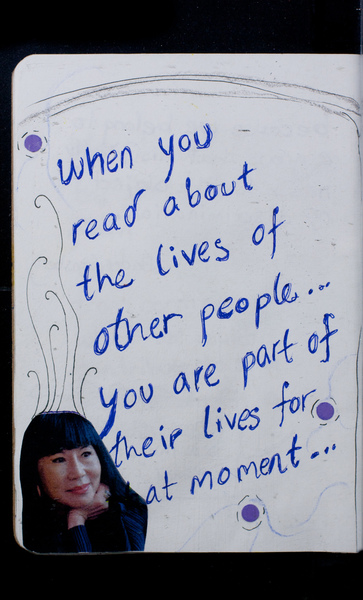 when you
read about
the lives of
other people...
you are part of
their lives for
at moment...